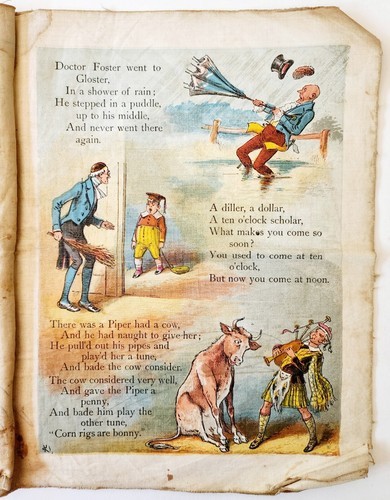 Doctor Foster went to
Gloster,
In a shower of rain;
He stepped in a puddle,
up to his middle,
And never went there
again.
A diller, a dollar,
A ten o'clock scholar,
What makes you come so
soon?
You used to come at ten
o'clock,
But now you come at noon.
There was a Piper had a cow,
And he had naught to give her;
He pull'd out his pipes and
play'd her a tune,
And bade the cow consider.
The cow considered very well,
And gave the Piper a
penny,
And bade him play the
other tune,
"Corn rigs are bonny."